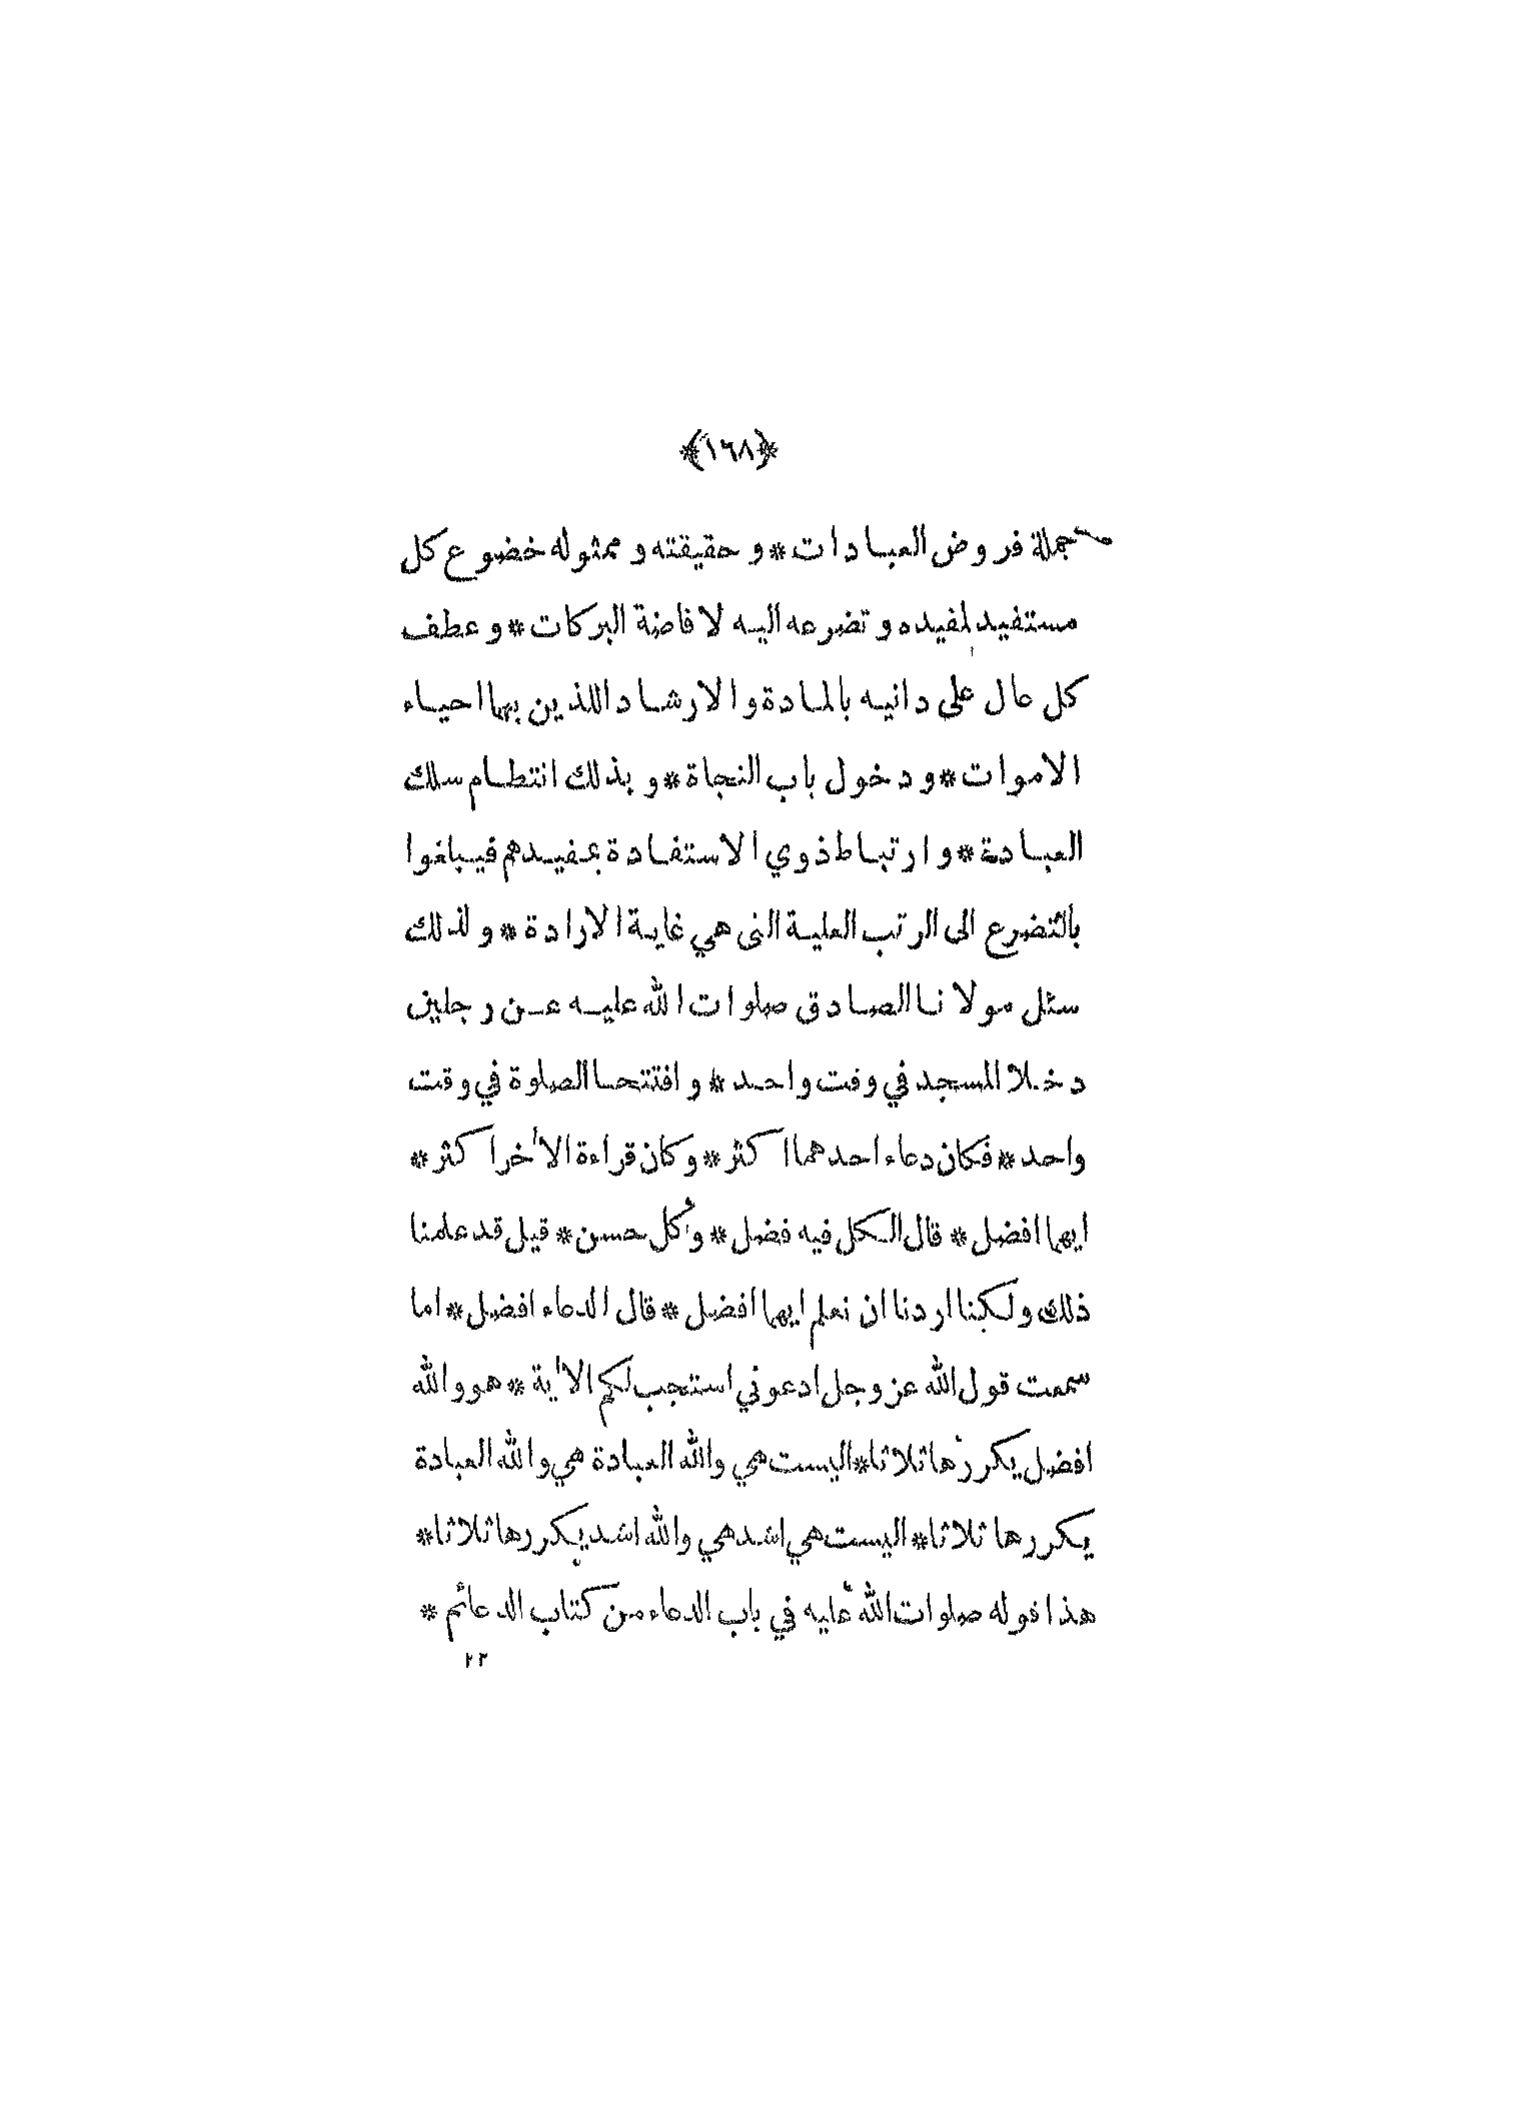 ﴿١٦٨﴾
جملة فروض العبادات * و حقيقته و ممثوله خضوع كل
مستفيد لمفيده و تضرعه اليه لافاضة البركات * و عطف
كل عال على دانيه بالمادة والارشاد اللذين بهما احياء
الاموات * و دخول باب النجاة * و بذلك انتظام سلك
العبادة * و ارتباط ذوي الاستفادة بمفيدهم فيبلغوا
بالتضرع الى الرتب العلية التى هي غاية الارادة * ولذلك
سئل مولانا الصادق صلوات الله عليه عن رجلين
دخلا المسجد في وقت واحد * و افتتحا الصلوة في وقت
واحد * فكان دعاء احدهما اكثر * وكان قراءة الأخر اكثر *
ايهما افضل * قال الكل فيه فضل * وكل حسن * قيل قد علمنا
ذلك ولكنا اردنا ان نعلم ايهما افضل * قال الدعاء افضل * اما
سمعت قول الله عز وجل ادعوني استجب لكم الأية * هو والله
افضل يكررها ثلاثا * اليست هي والله العبادة هي والله العبادة
يكررها ثلاثا * اليست هي اشد هي والله اشد يكررها ثلاثا *
هذا قوله صلوات الله عليه في باب الدعاء من كتاب الدعائم *
٢٣